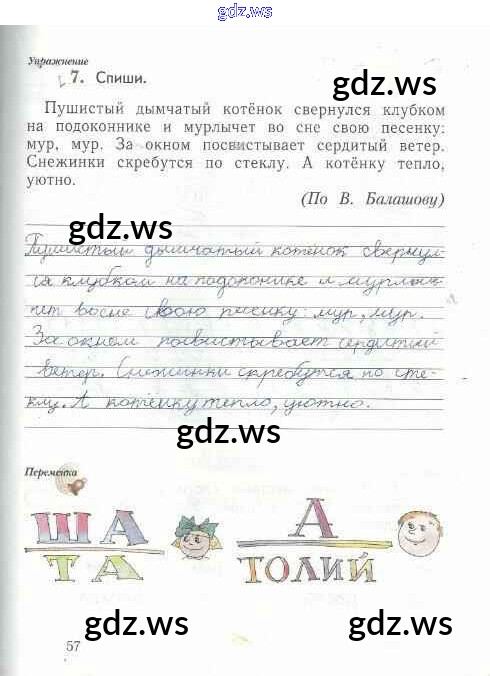 gdz.ws
Упражнение
7. Спиши.
gdz.ws
Пушистый дымчатый котёнок свернулся клубком
на подоконнике и мурлычет во сне свою песенку:
мур, мур. За окном посвистывает сердитый ветер.
Снежинки скребутся по стеклу. А котёнку тепло,
уютно.
(По В. Балашову)
gdz.ws
Пушистый дымчатый котёнок свернул-
ся клубком на подоконике и мурлы-
чет во сне свою песенку: мур, мур.
За окном посвистывает сердитый
ветер. Снежинки скребутся по сте-
клу. А котёнку тепло, уютно.
gdz.ws
Переменка
ША
ТА
А
ТОЛИЙ
gdz.ws gdz.ws
57